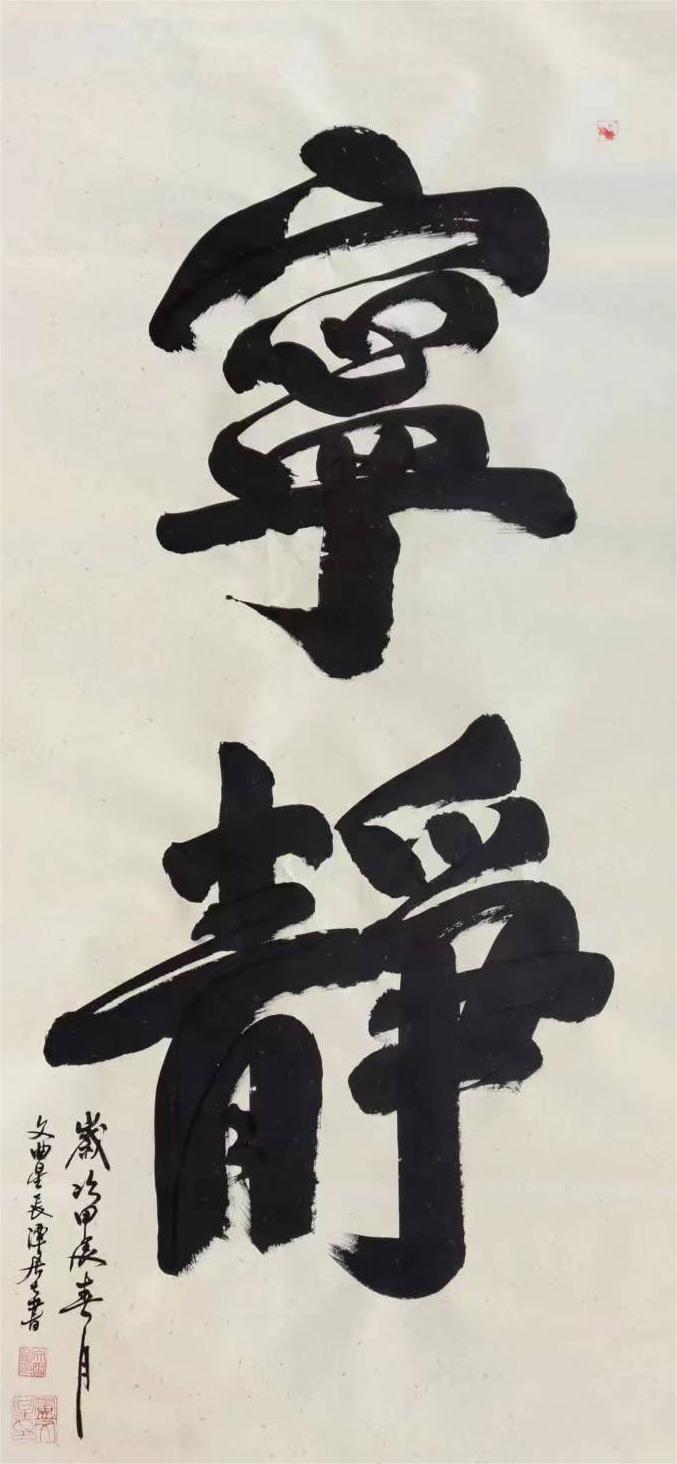 寧
靜
歲次甲辰春月
文曲星長潭居士書